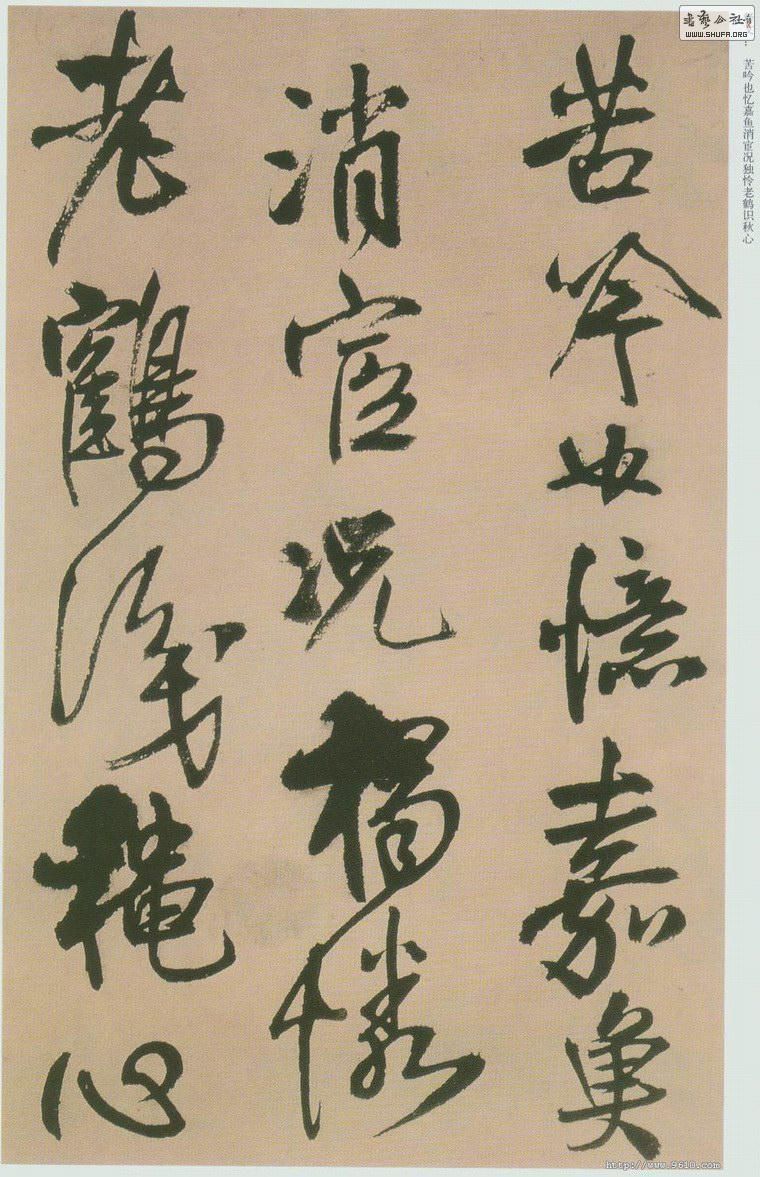 苦吟也憶嘉魚
消宦况獨憐
老鶴識秋心
苦吟也忆嘉鱼消宦况独怜老鹤识秋心
書藝公社
WWW.SHUFA.ORG
http://www.9610.com